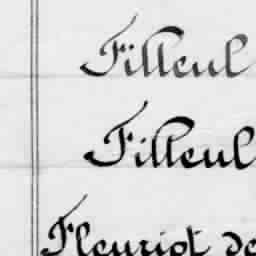 Filleul
Filleul
Fleuriot de